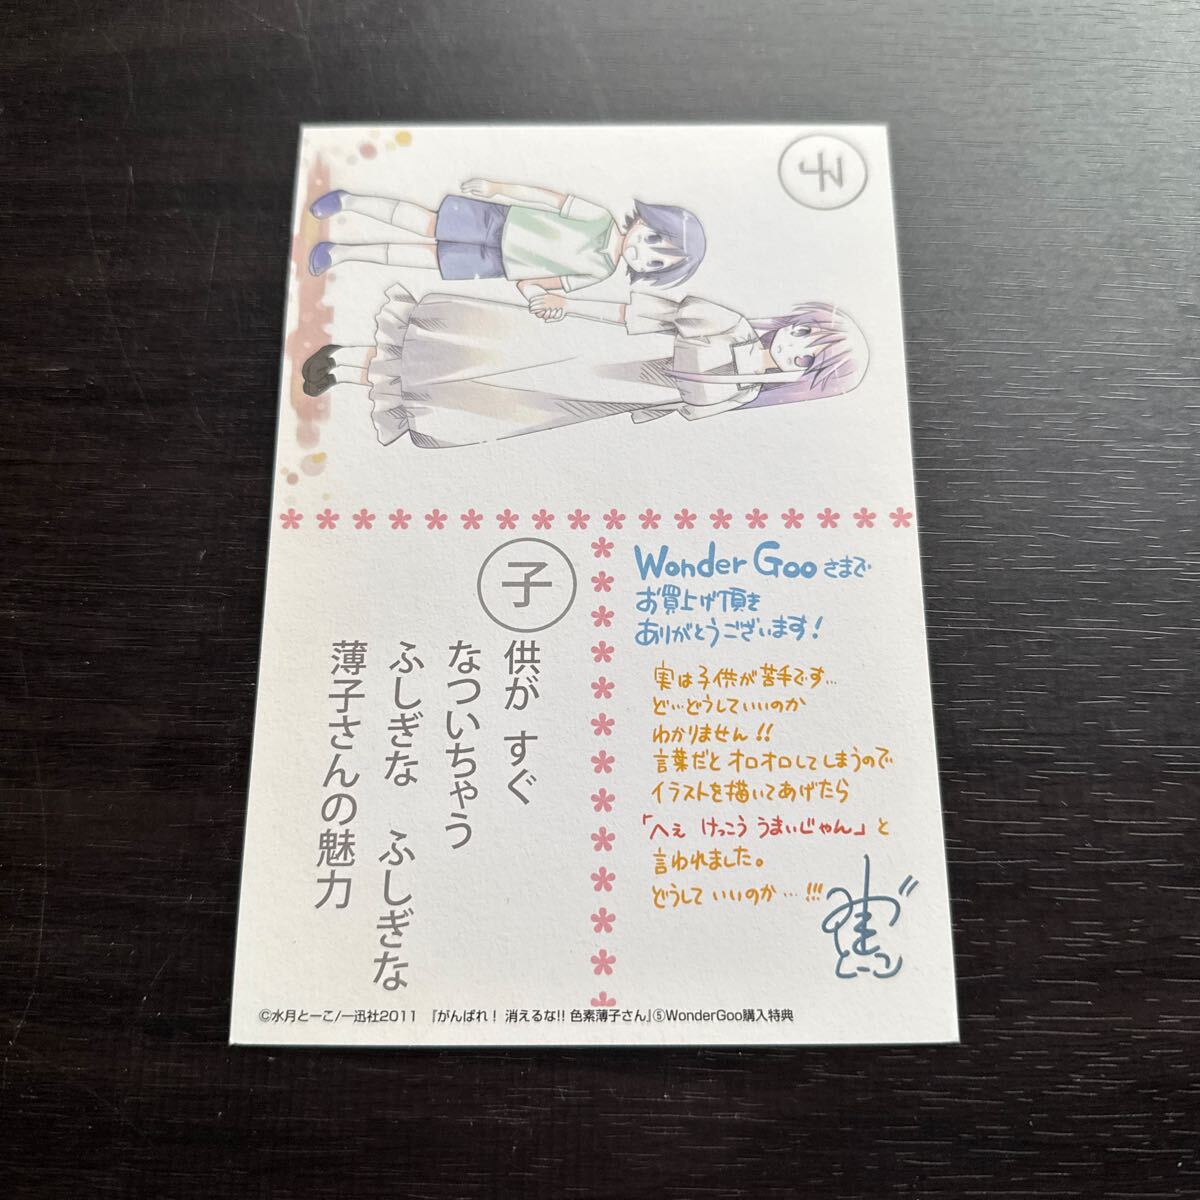 子
Wonder Goo さまで
お買上げ頂き
ありがとうございます!
実は子供が苦手です…
ど…どうしていいのか
わかりません!!
言葉だとオロオロしてしまうので
イラストを描いてあげたら
「へぇ けっこう うまいじゃん」と
言われました。
どうして いいのか…!!!
とーこ
子供が すぐ
なついちゃう
ふしぎな ふしぎな
薄子さんの魅力
©水月とーこ/一迅社2011 『がんばれ! 消えるな!! 色素薄子さん』⑤WonderGoo購入特典